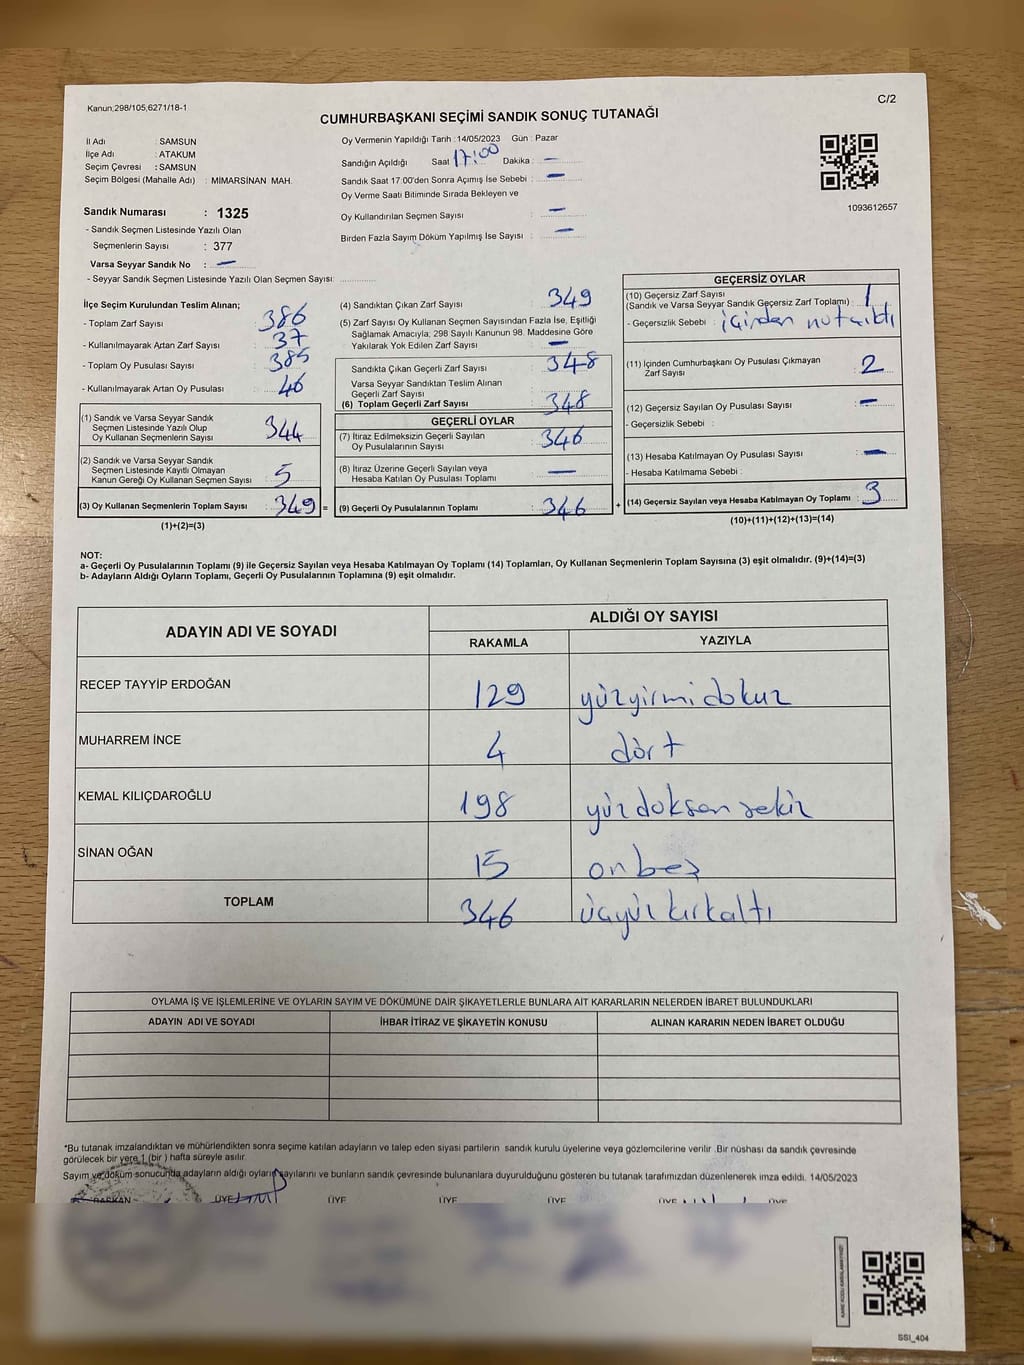 Kanun,298/105,6271/18-1
C/2
CUMHURBAŞKANI SEÇİMİ SANDIK SONUÇ TUTANAĞI
İl Adı : SAMSUN
İlçe Adı : ATAKUM
Seçim Çevresi : SAMSUN
Seçim Bölgesi (Mahalle Adı) : MİMARSİNAN MAH.
Sandık Numarası : 1325
- Sandık Seçmen Listesinde Yazılı Olan
Seçmenlerin Sayısı : 377
Varsa Seyyar Sandık No : —
- Seyyar Sandık Seçmen Listesinde Yazılı Olan Seçmen Sayısı:
Oy Vermenin Yapıldığı Tarih :14/05/2023 Gün : Pazar
Sandığın Açıldığı Saat 17:00 Dakika : —
Sandık Saat 17:00'den Sonra Açımış İse Sebebi : —
Oy Verme Saati Bitiminde Sırada Bekleyen ve
Oy Kullandırılan Seçmen Sayısı : —
Birden Fazla Sayım Döküm Yapılmış İse Sayısı : —
1093612657
İlçe Seçim Kurulundan Teslim Alınan;
- Toplam Zarf Sayısı : 386
- Kullanılmayarak Artan Zarf Sayısı : 37
- Toplam Oy Pusulası Sayısı : 385
- Kullanılmayarak Artan Oy Pusulası : 46
(1) Sandık ve Varsa Seyyar Sandık
Seçmen Listesinde Yazılı Olup
Oy Kullanan Seçmenlerin Sayısı : 344
(2) Sandık ve Varsa Seyyar Sandık
Seçmen Listesinde Kayıtlı Olmayan
Kanun Gereği Oy Kullanan Seçmen Sayısı : 5
(3) Oy Kullanan Seçmenlerin Toplam Sayısı : 349 =
(1)+(2)=(3)
(4) Sandıktan Çıkan Zarf Sayısı : 349
(5) Zarf Sayısı Oy Kullanan Seçmen Sayısından Fazla İse, Eşitliği
Sağlamak Amacıyla; 298 Sayılı Kanunun 98. Maddesine Göre
Yakılarak Yok Edilen Zarf Sayısı : —
Sandıkta Çıkan Geçerli Zarf Sayısı : 348
Varsa Seyyar Sandıktan Teslim Alınan
Geçerli Zarf Sayısı
(6) Toplam Geçerli Zarf Sayısı : 348
GEÇERLİ OYLAR
(7) İtiraz Edilmeksizin Geçerli Sayılan
Oy Pusulalarının Sayısı : 346
(8) İtiraz Üzerine Geçerli Sayılan veya
Hesaba Katılan Oy Pusulası Toplamı : —
(9) Geçerli Oy Pusulalarının Toplamı : 346 +
GEÇERSİZ OYLAR
(10) Geçersiz Zarf Sayısı
(Sandık ve Varsa Seyyar Sandık Geçersiz Zarf Toplamı) : 1
- Geçersizlik Sebebi : içinden
(11) İçinden Cumhurbaşkanı Oy Pusulası Çıkmayan
Zarf Sayısı : 2
(12) Geçersiz Sayılan Oy Pusulası Sayısı : —
- Geçersizlik Sebebi :
(13) Hesaba Katılmayan Oy Pusulası Sayısı : —
- Hesaba Katılmama Sebebi :
(14) Geçersiz Sayılan veya Hesaba Katılmayan Oy Toplamı : 3
(10)+(11)+(12)+(13)=(14)
NOT:
a- Geçerli Oy Pusulalarının Toplamı (9) ile Geçersiz Sayılan veya Hesaba Katılmayan Oy Toplamı (14) Toplamları, Oy Kullanan Seçmenlerin Toplam Sayısına (3) eşit olmalıdır. (9)+(14)=(3)
b- Adayların Aldığı Oyların Toplamı, Geçerli Oy Pusulalarının Toplamına (9) eşit olmalıdır.
ADAYIN ADI VE SOYADI
ALDIĞI OY SAYISI
RAKAMLA YAZIYLA
RECEP TAYYİP ERDOĞAN 129 yüzyirmidokuz
MUHARREM İNCE 4 dört
KEMAL KILIÇDAROĞLU 198 yüzdoksan sekiz
SİNAN OĞAN 15 onbeş
TOPLAM 346 üçyüz kırkaltı
OYLAMA İŞ VE İŞLEMLERİNE VE OYLARIN SAYIM VE DÖKÜMÜNE DAİR ŞİKAYETLERLE BUNLARA AİT KARARLARIN NELERDEN İBARET BULUNDUKLARI
ADAYIN ADI VE SOYADI İHBAR İTİRAZ VE ŞİKAYETİN KONUSU ALINAN KARARIN NEDEN İBARET OLDUĞU
*Bu tutanak imzalandıktan ve mühürlendikten sonra seçime katılan adayların ve talep eden siyasi partilerin sandık kurulu üyelerine veya gözlemcilerine verilir .Bir nüshası da sandık çevresinde
görülecek bir yere 1 (bir ) hafta süreyle asılır.
Sayım ve döküm sonucunda adayların aldığı oyların sayılarını ve bunların sandık çevresinde bulunanlara duyurulduğunu gösteren bu tutanak tarafımızdan düzenlenerek imza edildi. 14/05/2023
BAŞKAN ÜYE ÜYE ÜYE ÜYE ÜYE ÜYE
SSI_404